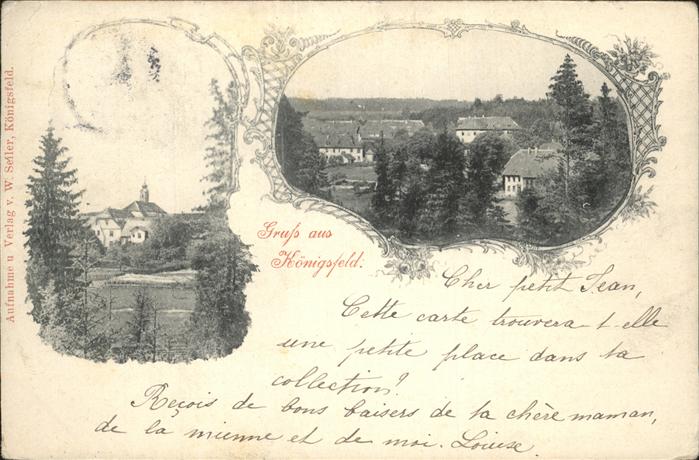 Aufnahme u Verlag v. W. Seiler, Königsfeld.
Gruß aus
Königsfeld.
Cher petit Jean,
Cette carte trouvera t-elle
une petite place dans ta
collection?
Reçois de bons baisers de ta chère maman,
de la mienne et de moi. Louise.